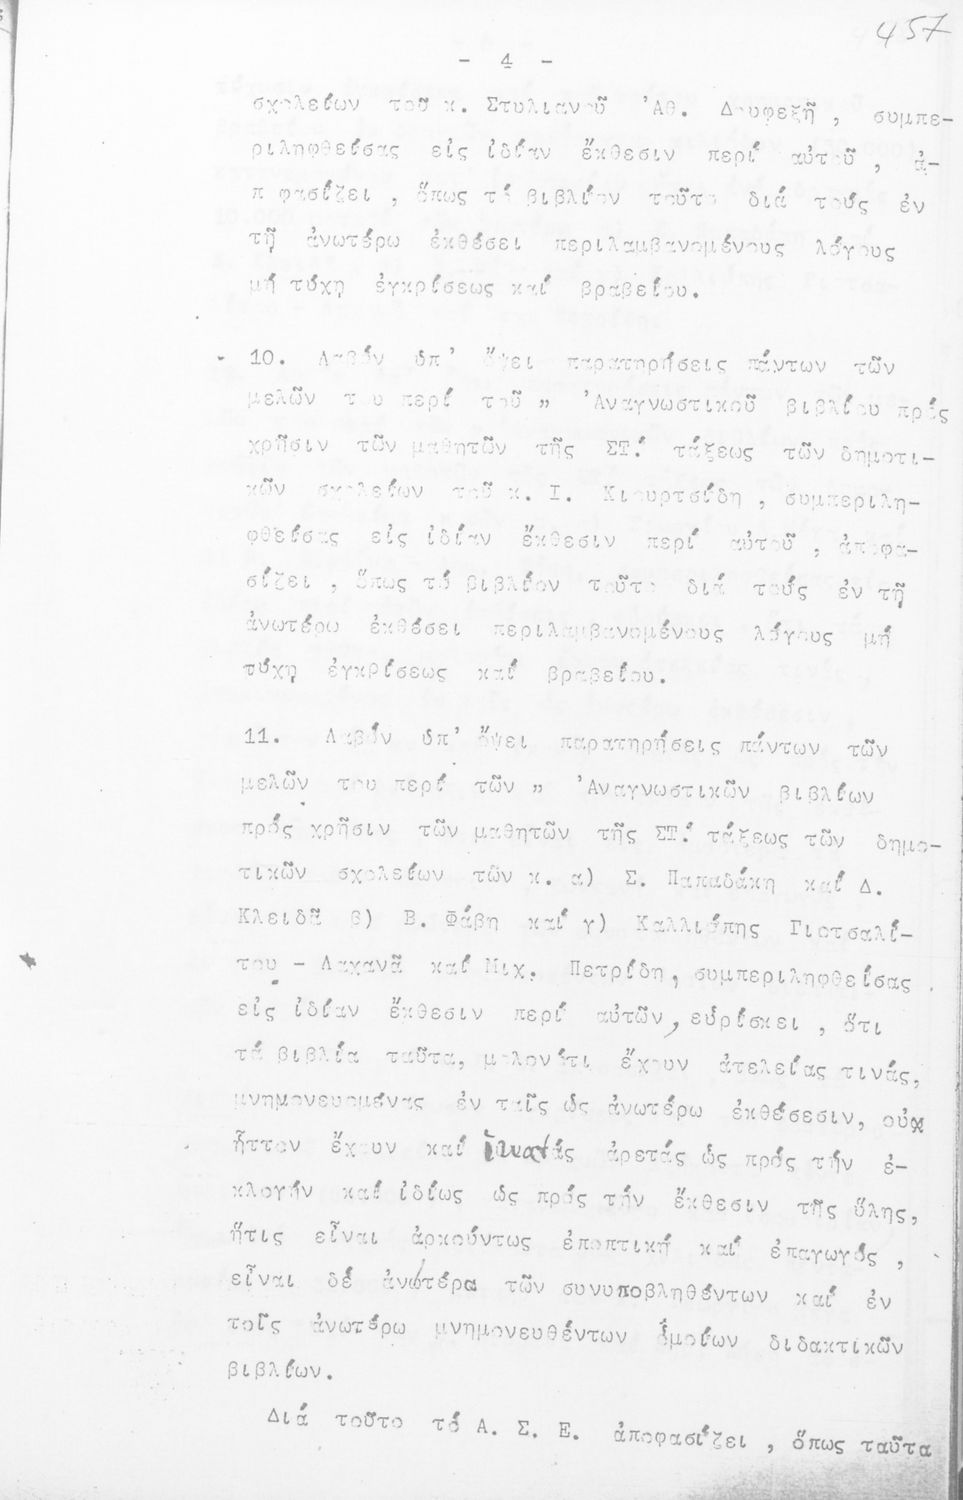 457
- 4 -
σχολείων τοῦ κ. Στυλιανοῦ 'Αθ. Δουφεξῆ , συμπε-
ριληφθείσας εἰς ἰδίαν ἔκθεσιν περί αὐτοῦ , ἀ-
π φασίζει , ὅπως τό βιβλίον τοῦτο διά τούς ἐν
τῇ ἀνωτέρω ἐκθέσει περιλαμβανομένους λόγους
μή τύχῃ ἐγκρίσεως καί βραβείου.
10. Λαβόν ὑπ' ὄψει παρατηρήσεις πάντων τῶν
μελῶν του περί τοῦ " 'Αναγνωστικοῦ βιβλίου πρός
χρῆσιν τῶν μαθητῶν τῆς ΣΤ! τάξεως τῶν δημοτι-
κῶν σχολείων τοῦ κ. Ι. Κιουρτσίδη , συμπεριλη-
φθείσας εἰς ἰδίαν ἔκθεσιν περί αὐτοῦ , ἀποφα-
σίζει , ὅπως τό βιβλίον τοῦτο διά τούς ἐν τῇ
ἀνωτέρω ἐκθέσει περιλαμβανομένους λόγους μή
τύχῃ ἐγκρίσεως καί βραβείου.
11. Λαβόν ὑπ' ὄψει παρατηρήσεις πάντων τῶν
μελῶν του περί τῶν " 'Αναγνωστικῶν βιβλίων
πρός χρῆσιν τῶν μαθητῶν τῆς ΣΤ! τάξεως τῶν δημο-
τικῶν σχολείων τῶν κ. α) Σ. Παπαδάκη καί Δ.
Κλειδᾶ β) Β. Φάβη καί γ) Καλλιόπης Γιοτσαλί-
του - Λαχανᾶ καί Μιχ. Πετρίδη, συμπεριληφθείσας
εἰς ἰδίαν ἔκθεσιν περί αὐτῶν, εὑρίσκει , ὅτι
τά βιβλία ταῦτα, μολονότι ἔχουν ἀτελείας τινάς,
μνημονευομένας ἐν ταῖς ὡς ἀνωτέρω ἐκθέσεσιν, οὐχ
ἧττον ἔχουν καί ἀρετάς ὡς πρός τήν ἐ-
κλογήν καί ἰδίως ὡς πρός τήν ἔκθεσιν τῆς ὕλης,
ἥτις εἶναι ἀρκούντως ἐποπτική καί ἐπαγωγός ,
εἶναι δέ ἀνώτερα τῶν συνυποβληθέντων καί ἐν
τοῖς ἀνωτέρω μνημονευθέντων ὁμοίων διδακτικῶν
βιβλίων.
Διά τοῦτο τό Α. Σ. Ε. ἀποφασίζει , ὅπως ταῦτα